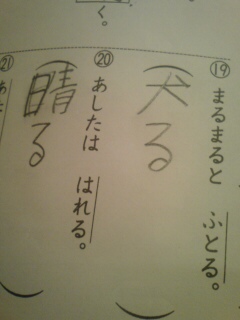 く。
⑲ まるまると ふとる。
(犬る)
⑳ あしたは はれる。
(晴る)
㉑